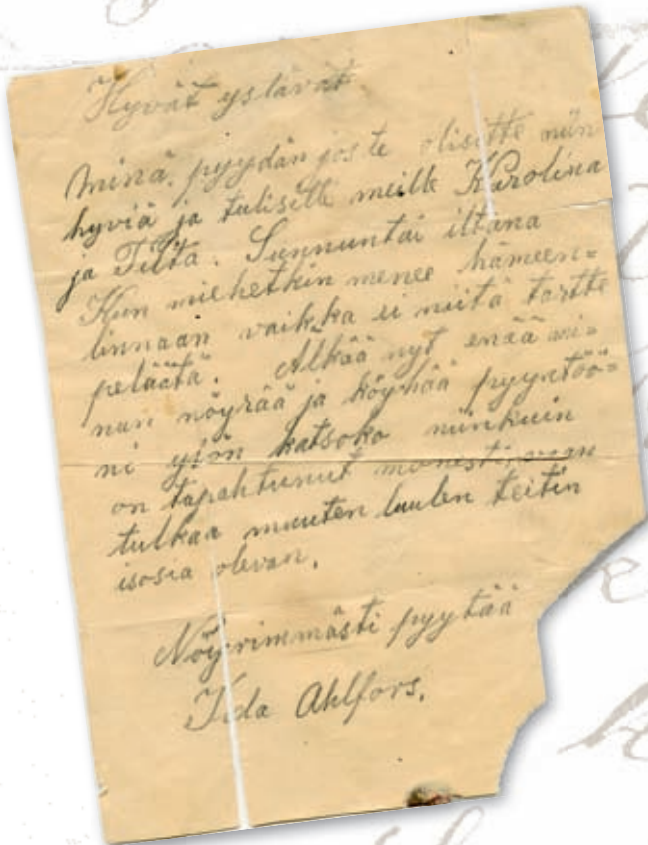 Hyvät yslävät.
Minä. pyydän jos te olisitte niin
hyviä ja tulisitte meille Karolina
ja Tilta. Sunnuntai iltana
Kun miehetkin menee hämeen=
linnaan vaikka ei niitä tartte
peläätä. Älkää nyt enää mi=
nun nöyrää ja köyhää pyyntöö=
ni ylön katsoko niinkuin
on tapahtunut monesti vaan
tulkaa muuten luulen teitin
isosia olevan.
Nöyrimmästi pyytää
Ida Ahlfors.